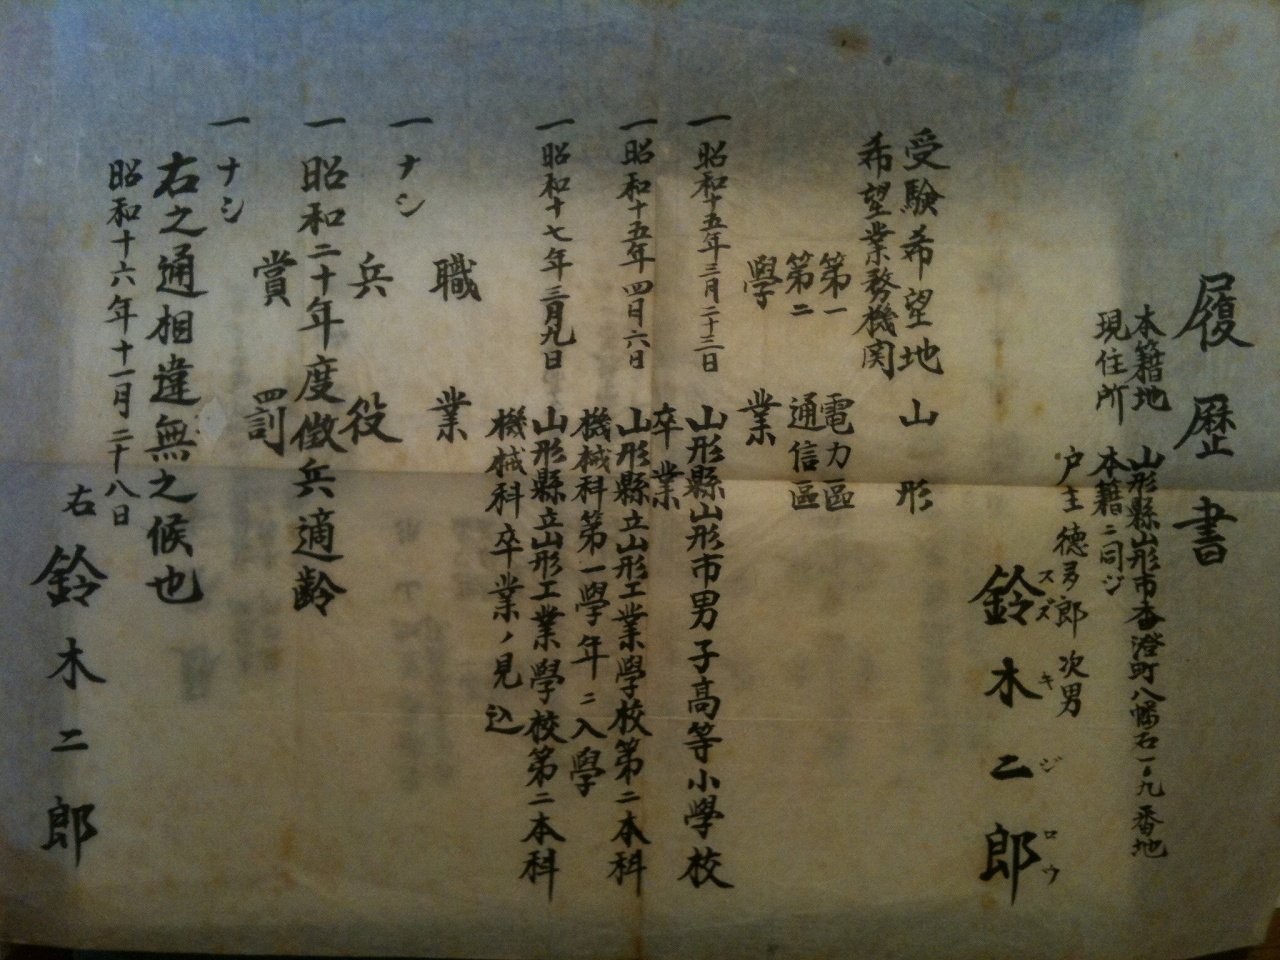 履歴書
本籍地 山形縣山形市香澄町八幡石一ノ九番地
現住所 本籍ニ同ジ
戸主徳多郎次男
鈴木二郎
スズキジロウ
受験希望地 山形
希望業務機関
第一 電力區
第二 通信區
學業
一昭和十五年三月二十三日 山形縣山形市男子高等小學校
卒業
一昭和十五年四月六日 山形縣立山形工業學校第二本科
機械科第一學年ニ入學
一昭和十七年三月九日 山形縣立山形工業學校第二本科
機械科卒業ノ見込
職業
一ナシ
兵役
一昭和二十年度徴兵適齢
賞罰
一ナシ
右之通相違無之候也
昭和十六年十一月二十八日
右 鈴木二郎